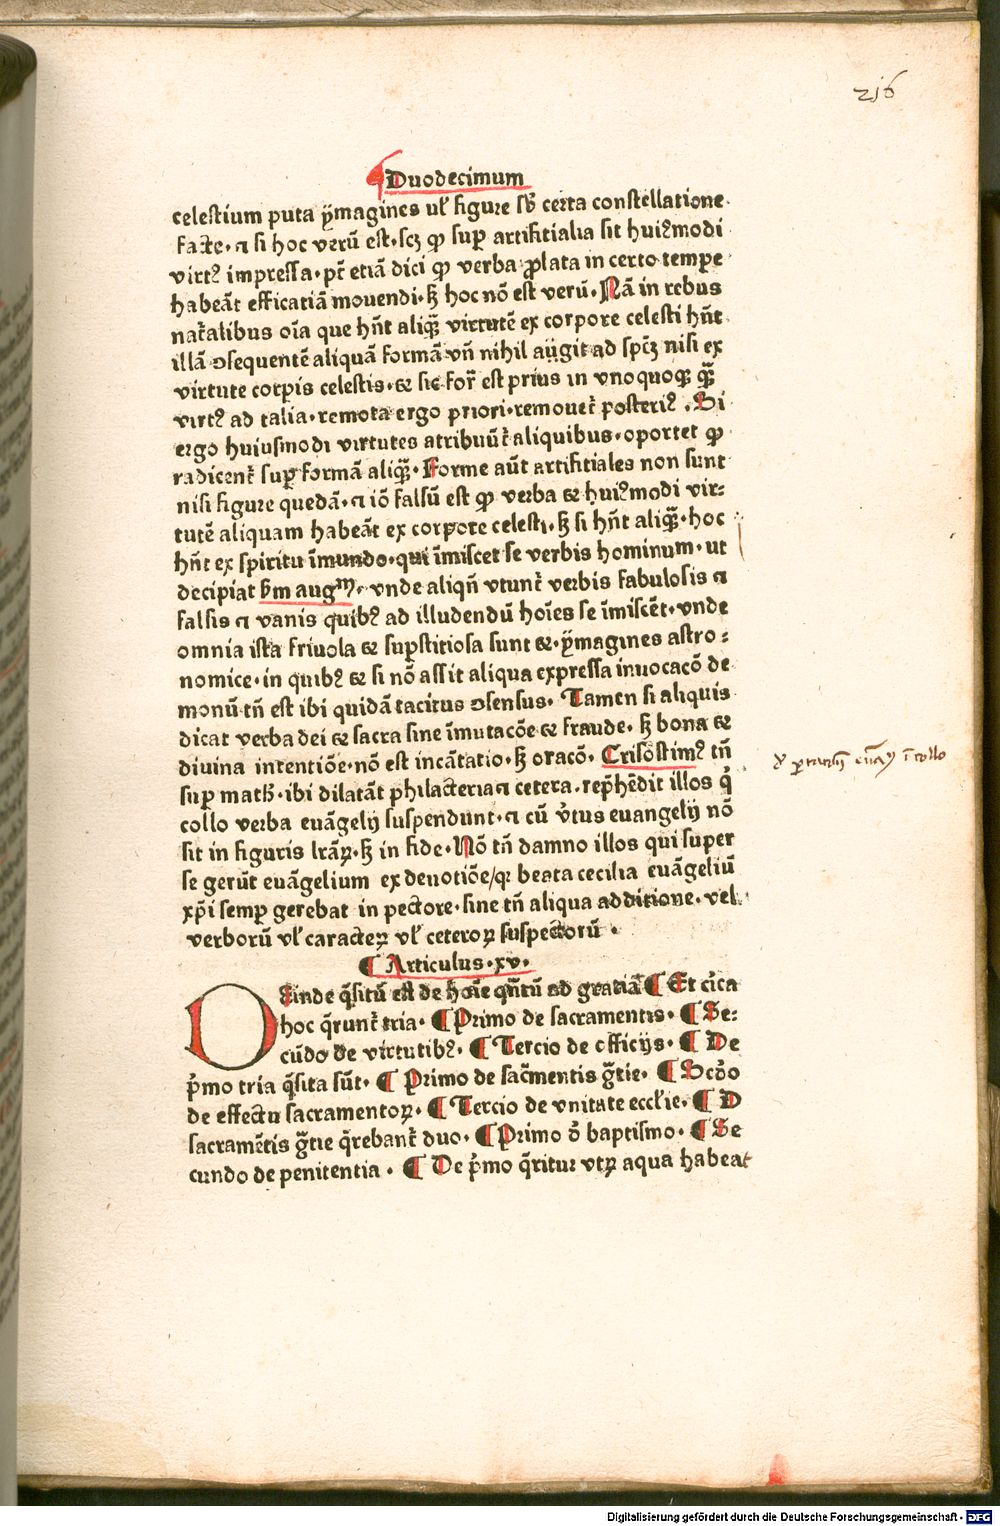 216
Duodecimum
celestium puta ẏmagines ul᷑ figure sb̾ certa constellatione·
facte·⁊ si hoc verū est·scꝫ ꝙ sup̱ artifitialia sit huiꝰmodi
virtꝰ impressa·pt̄ etiā dici ꝙ verba ꝓlata in certo tempe
habeāt efficatiā movendi·sꝫ hoc nō est verū·Nā in rebus
nat̄alibus oīa que hn̄t aliqȝ virtutē ex corpore celesti hn̄t
illā ꝯsequentē aliquā formā vn̄ nihil aṳgit ad sp̄cꝫ nisi ex
virtute corꝑis celestis·& sic for̄ est prius in vnoquoqȝ qȝ
virtꝰ ad talia·remota ergo priori·remouet᷑ posteriꝰ·Si
ergo huiusmodi virtutes atribuūt᷑ aliquibus·oportet ꝙ
radicent᷑ sup̱ formā aliqȝ·Forme aūt artifitiales non sunt
nisi figure quedā·⁊ iō falsū est ꝙ verba & huiꝰmodi vir:
tutē aliquam habeāt ex corpore celesti·sꝫ si hn̄t aliqȝ·hoc
hn̄t ex spiritu īmundo·qui īmiscet se verbis hominum·ut
decipiat b̄m augᵐ·vnde aliqn̄ vtunt᷑ verbis fabulosis ⁊
falsis ⁊ vanis quibꝰ ad illudendū hoīes se īmiscēt·vnde
omnia ista friuola & sup̱stitiosa sunt &·ẏmagines astro:
nomice·in quibꝰ & si nō assit aliqua expressa inuocacō de
monū tn̄ est ibi quidā tacitus ꝯsensus·Tamen si aliquis
dicat verba dei & sacra sine īmutacōe & fraude·sꝫ bona &
diuina intentiōe·nō est incātatio·sꝫ oracō·Crisostimꝰ tn̄
sup̱ math̄·ibi dilatāt philacteria ⁊ cetera·rep̄hēdit illos q̇
collo verba euāgelij suspendunt·⁊ cū v̓tus euangelij nō
sit in figuris lr̄aꝝ·sꝫ in fide·Nō tn̄ damno illos qui super
se gerūt euāgelium ex deuotiōe/qꝛ beata cecilia euāgeliū
xp̄i semp̱ gerebat in pectore·sine tn̄ aliqua additione·vel
verborū vl᷑ caracteꝝ vl᷑ ceteroꝝ suspectorū·
¶ Articulus·xv·
Deinde q̄situ̅ est de hoīe qn̄tū ad gratiā ¶ Et cīca
hoc q̄runt᷑ tria·¶ Primo de sacramentis·¶ Se:
cūdo de virtutibꝰ·¶ Tercio de officijs·¶ De
p̓mo tria q̄sita sūt·¶ Primo de sac̄mentis gr̄tie·¶ Scd̓o
de effectu sacramentoꝝ·¶ Tercio de vnitate eccl̄ie·¶ D
sacramētis gr̄tie q̄rebant᷑ duo·¶ Primo d̓ baptismo·¶ Se
cundo de penitentia·¶ De p̓mo q̄ritur vtꝝ aqua habeat
collo
Digitalisierung gefördert durch die Deutsche Forschungsgemeinschaft - DFG